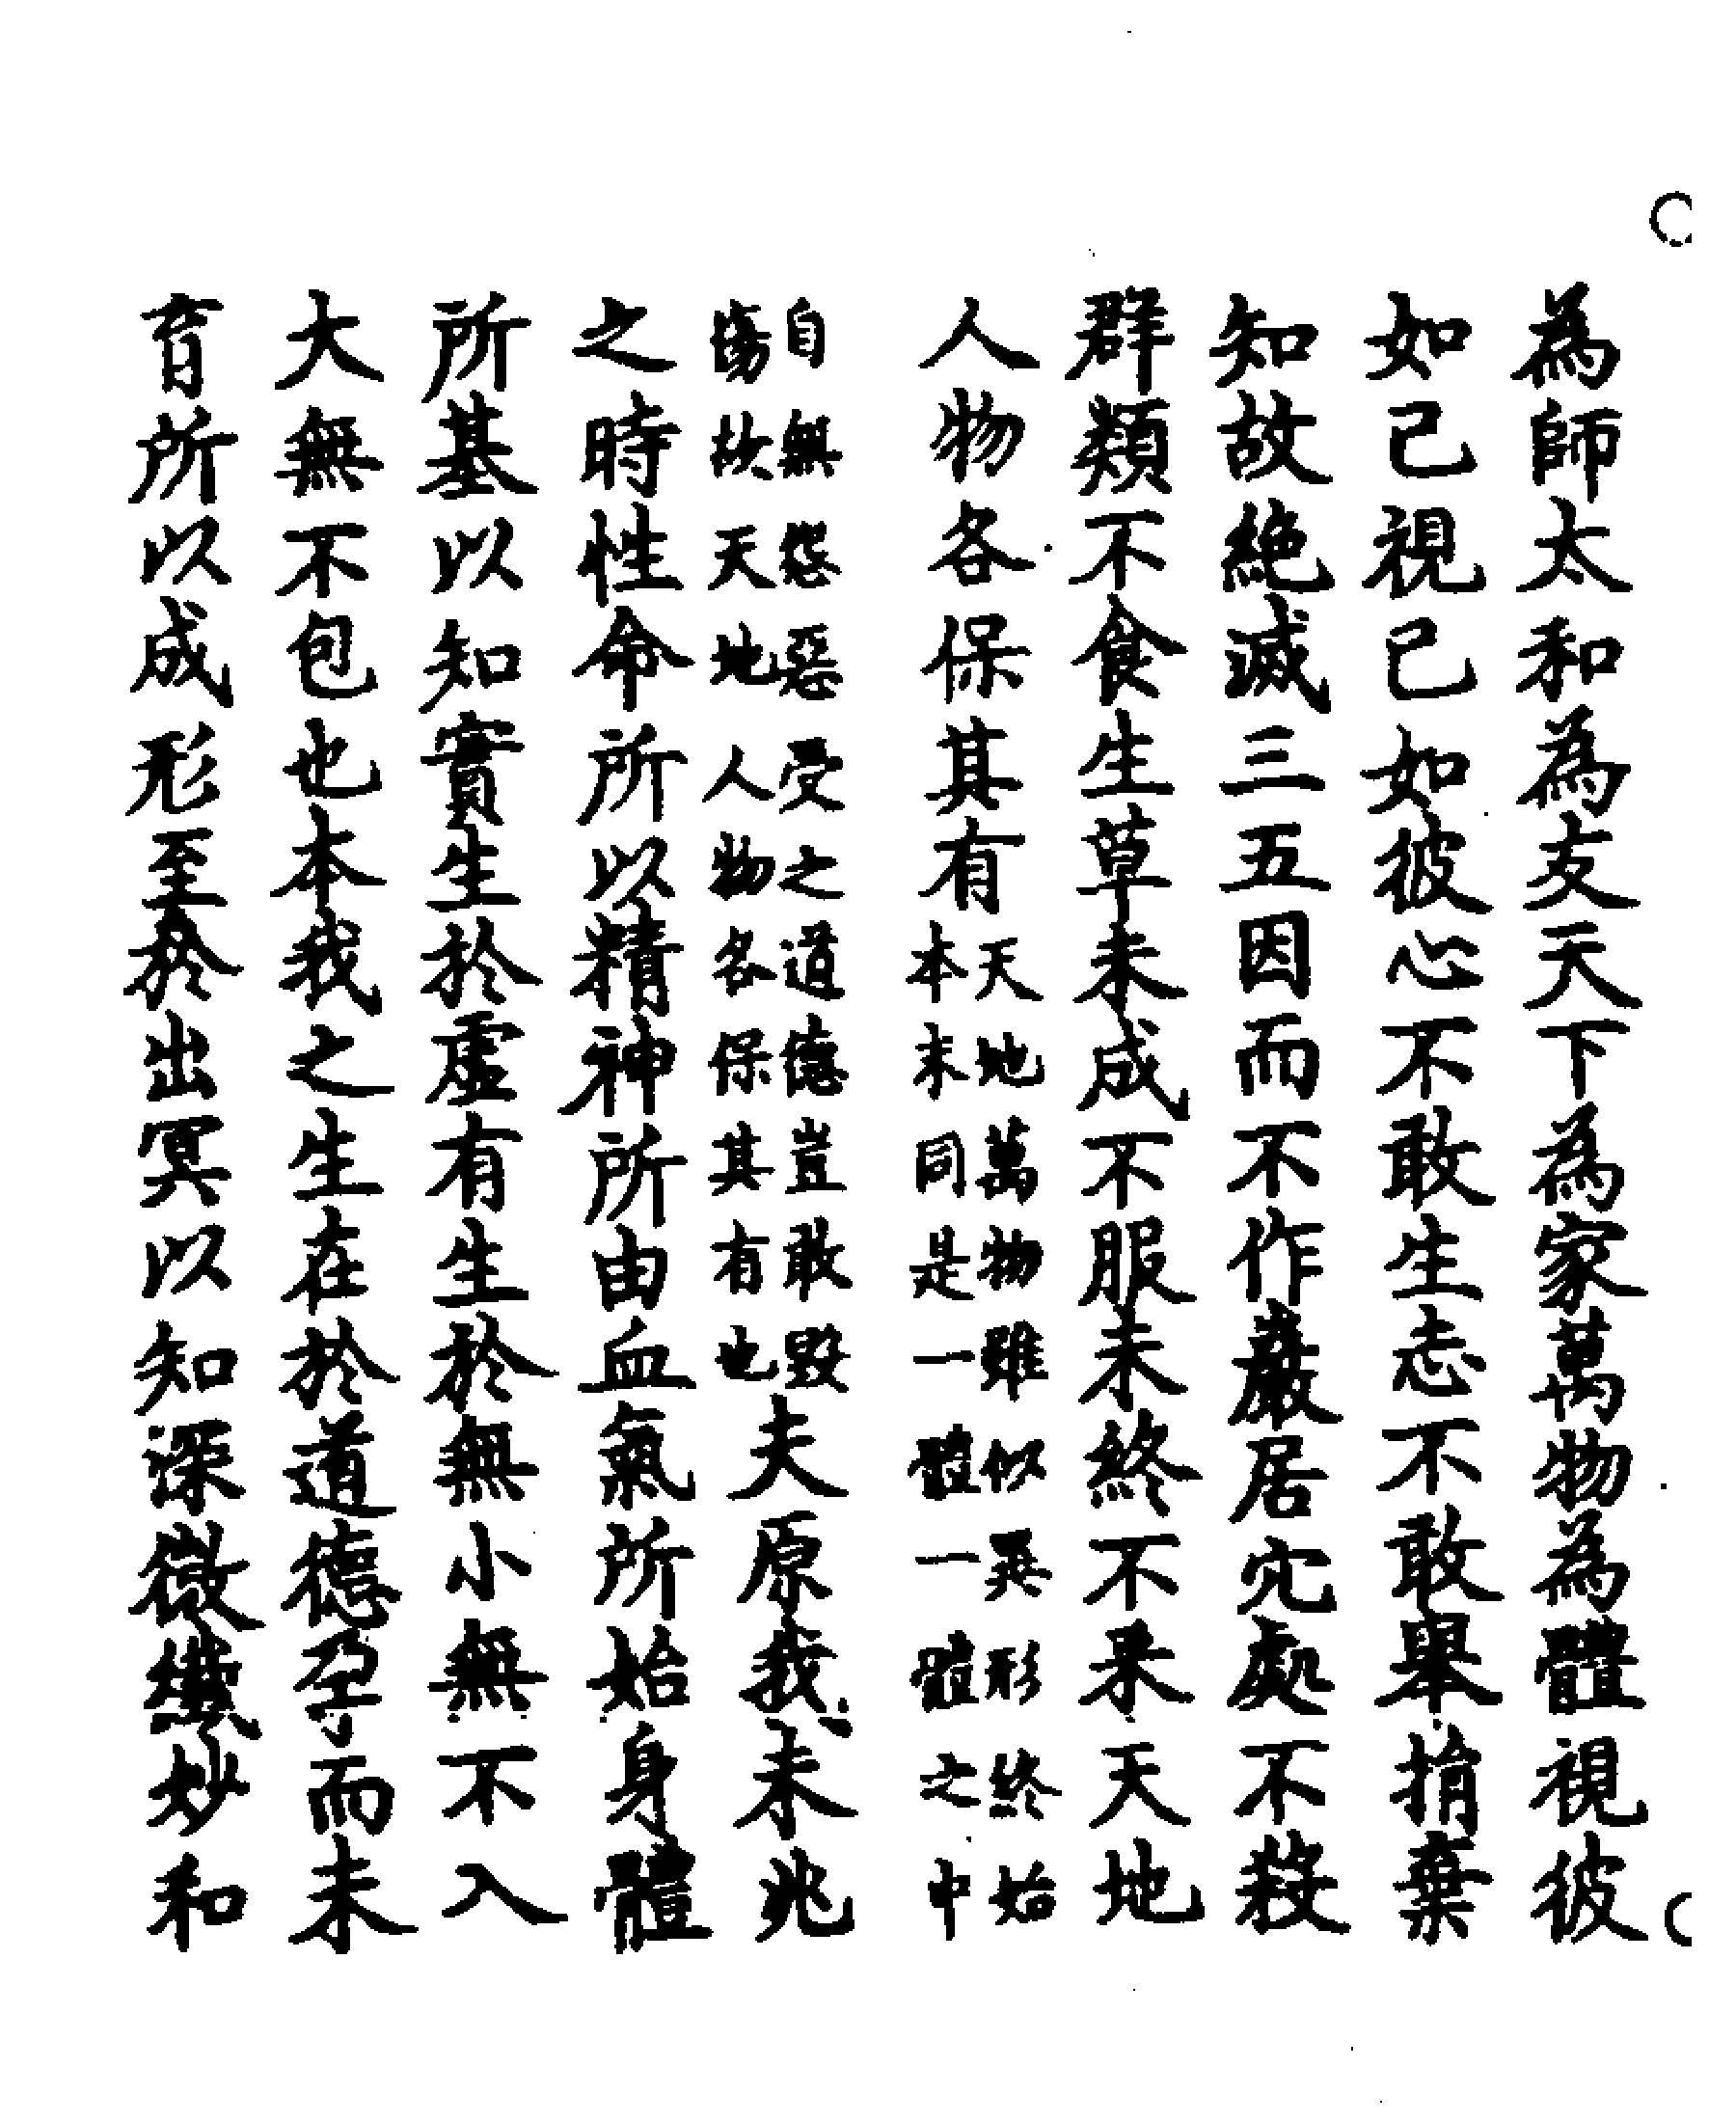 為師太和為友天下為家萬物為體視彼
如已視已如彼心不敢生志不敢舉捐棄
知故絶滅三五因而不作巖居穴處不殺
群類不食生草未成不服未終不采天地
人物各保其有天地萬物雖似異形終始
本末同是一體一體之中
自無怨惡受之道德豈敢毀
傷故天地人物各保其有也夫原我未兆
之時性命所以精神所由血氣所始身體
所基以知實生於虛有生於無小無不入
大無不包也本我之生在於道德孕而未
育所以成形至於出冥以知深微纖妙和